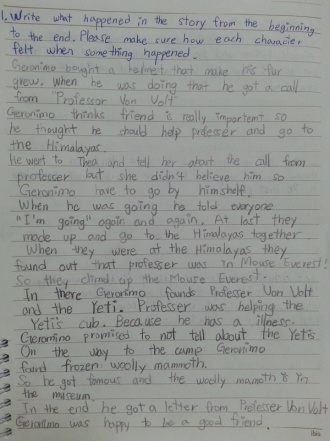 1. Write what happened in the story from the beginning
to the end. Please make sure how each character
felt when something happened.
Geronimo bought a helmet that make his fur
grew. When he was doing that he got a call
from "Professor Von Volt"
Geronimo thinks friend is really important so
he thought he should help professor and go to
the Himalayas.
He went to Thea and tell her about the call from
professor but she didn't believe him so
Geronimo have to go by himshelf.
When he was going he told everyone
"I'm going" again and again. At last they
made up and go to the Himalayas together
When they were at the Himalayas they
found out that professor was in Mouse Everest!
So they climb up the Mouse Everest.
In there Geronimo founds Professer Von Volt
and the Yeti. Professor was helping the
Yeti's cub. Because he has a illness.
Geronimo promised to not tell about the Yetis
On the way to the camp Geronimo
found frozen woolly mammoth.
So he got famous and the woolly mamoth is in
the museum.
In the end he got a letter from Professer Von Volt
Geronimo was happy to be a good friend.